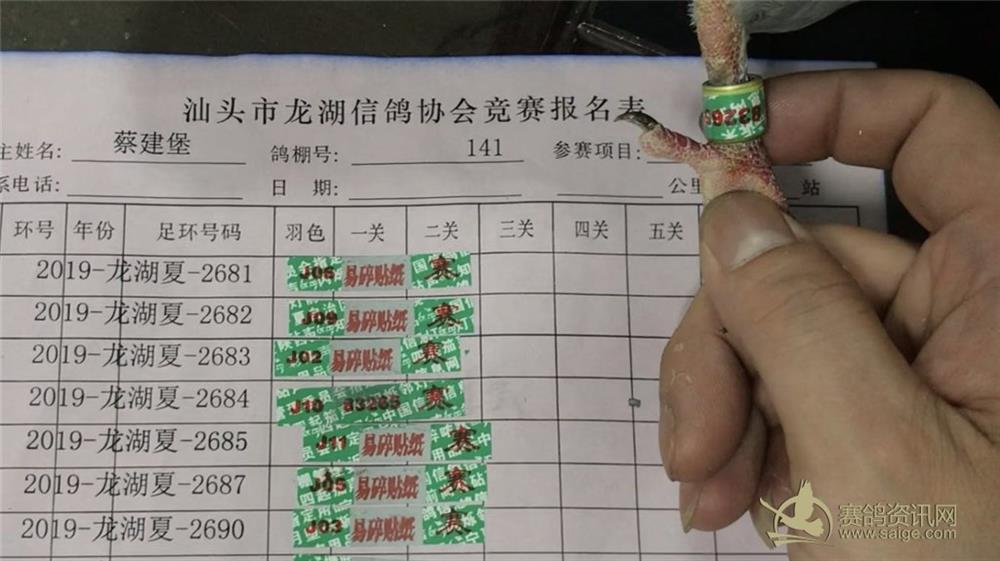 汕头市龙湖信鸽协会竞赛报名表
主姓名: 蔡建堡 鸽棚号: 141 参赛项目:
系电话: 日 期: 公里 站
环号 年份 足环号码 羽色 一关 二关 三关 四关 五关
2019-龙湖夏-2681 J06 易碎贴纸 赛
2019-龙湖夏-2682 J09 易碎贴纸 赛
2019-龙湖夏-2683 J02 易碎贴纸 赛
2019-龙湖夏-2684 J10 83265 赛
2019-龙湖夏-2685 J11 易碎贴纸 赛
2019-龙湖夏-2687 J05 易碎贴纸 赛
2019-龙湖夏-2690 J03 易碎贴纸 赛
83265
赛鸽资讯网
www.saige.com